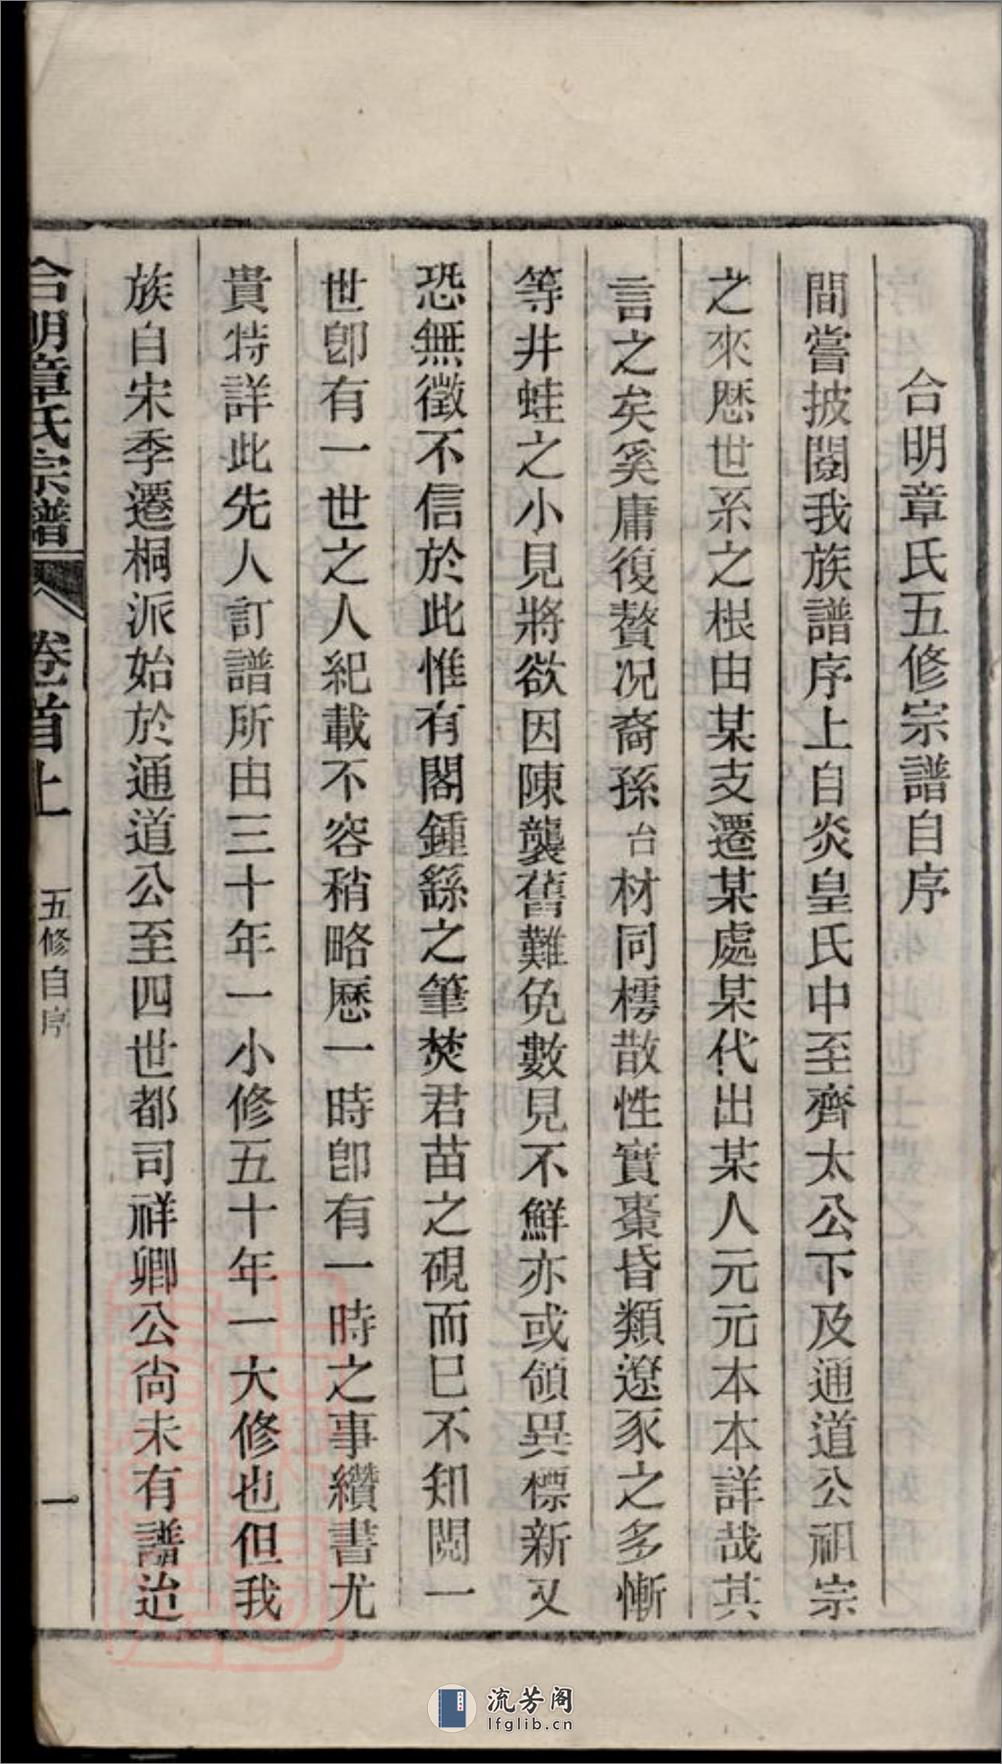 合明章氏五修宗譜自序
間嘗披閱我族譜序上自炎皇氏中至齊太公下及通道公祖宗
之來歷世系之根由某支遷某處某代出某人元元本本詳哉其
言之矣奚庸復贅況裔孫台材同樗散性實棗昏類遼豕之多慚
等井蛙之小見將欲因陳襲舊難免數見不鮮亦或領異標新又
恐無徵不信於此惟有閣鍾繇之筆焚君苗之硯而已不知閱一
世卽有一世之人紀載不容稍略歷一時卽有一時之事纘書尤
貴特詳此先人訂譜所由三十年一小修五十年一大修也但我
族自宋季遷桐派始於通道公至四世都司祥卿公尚未有譜迨
合明章氏宗譜
卷首上
五修自序
一
流芳阁
lfglib.cn